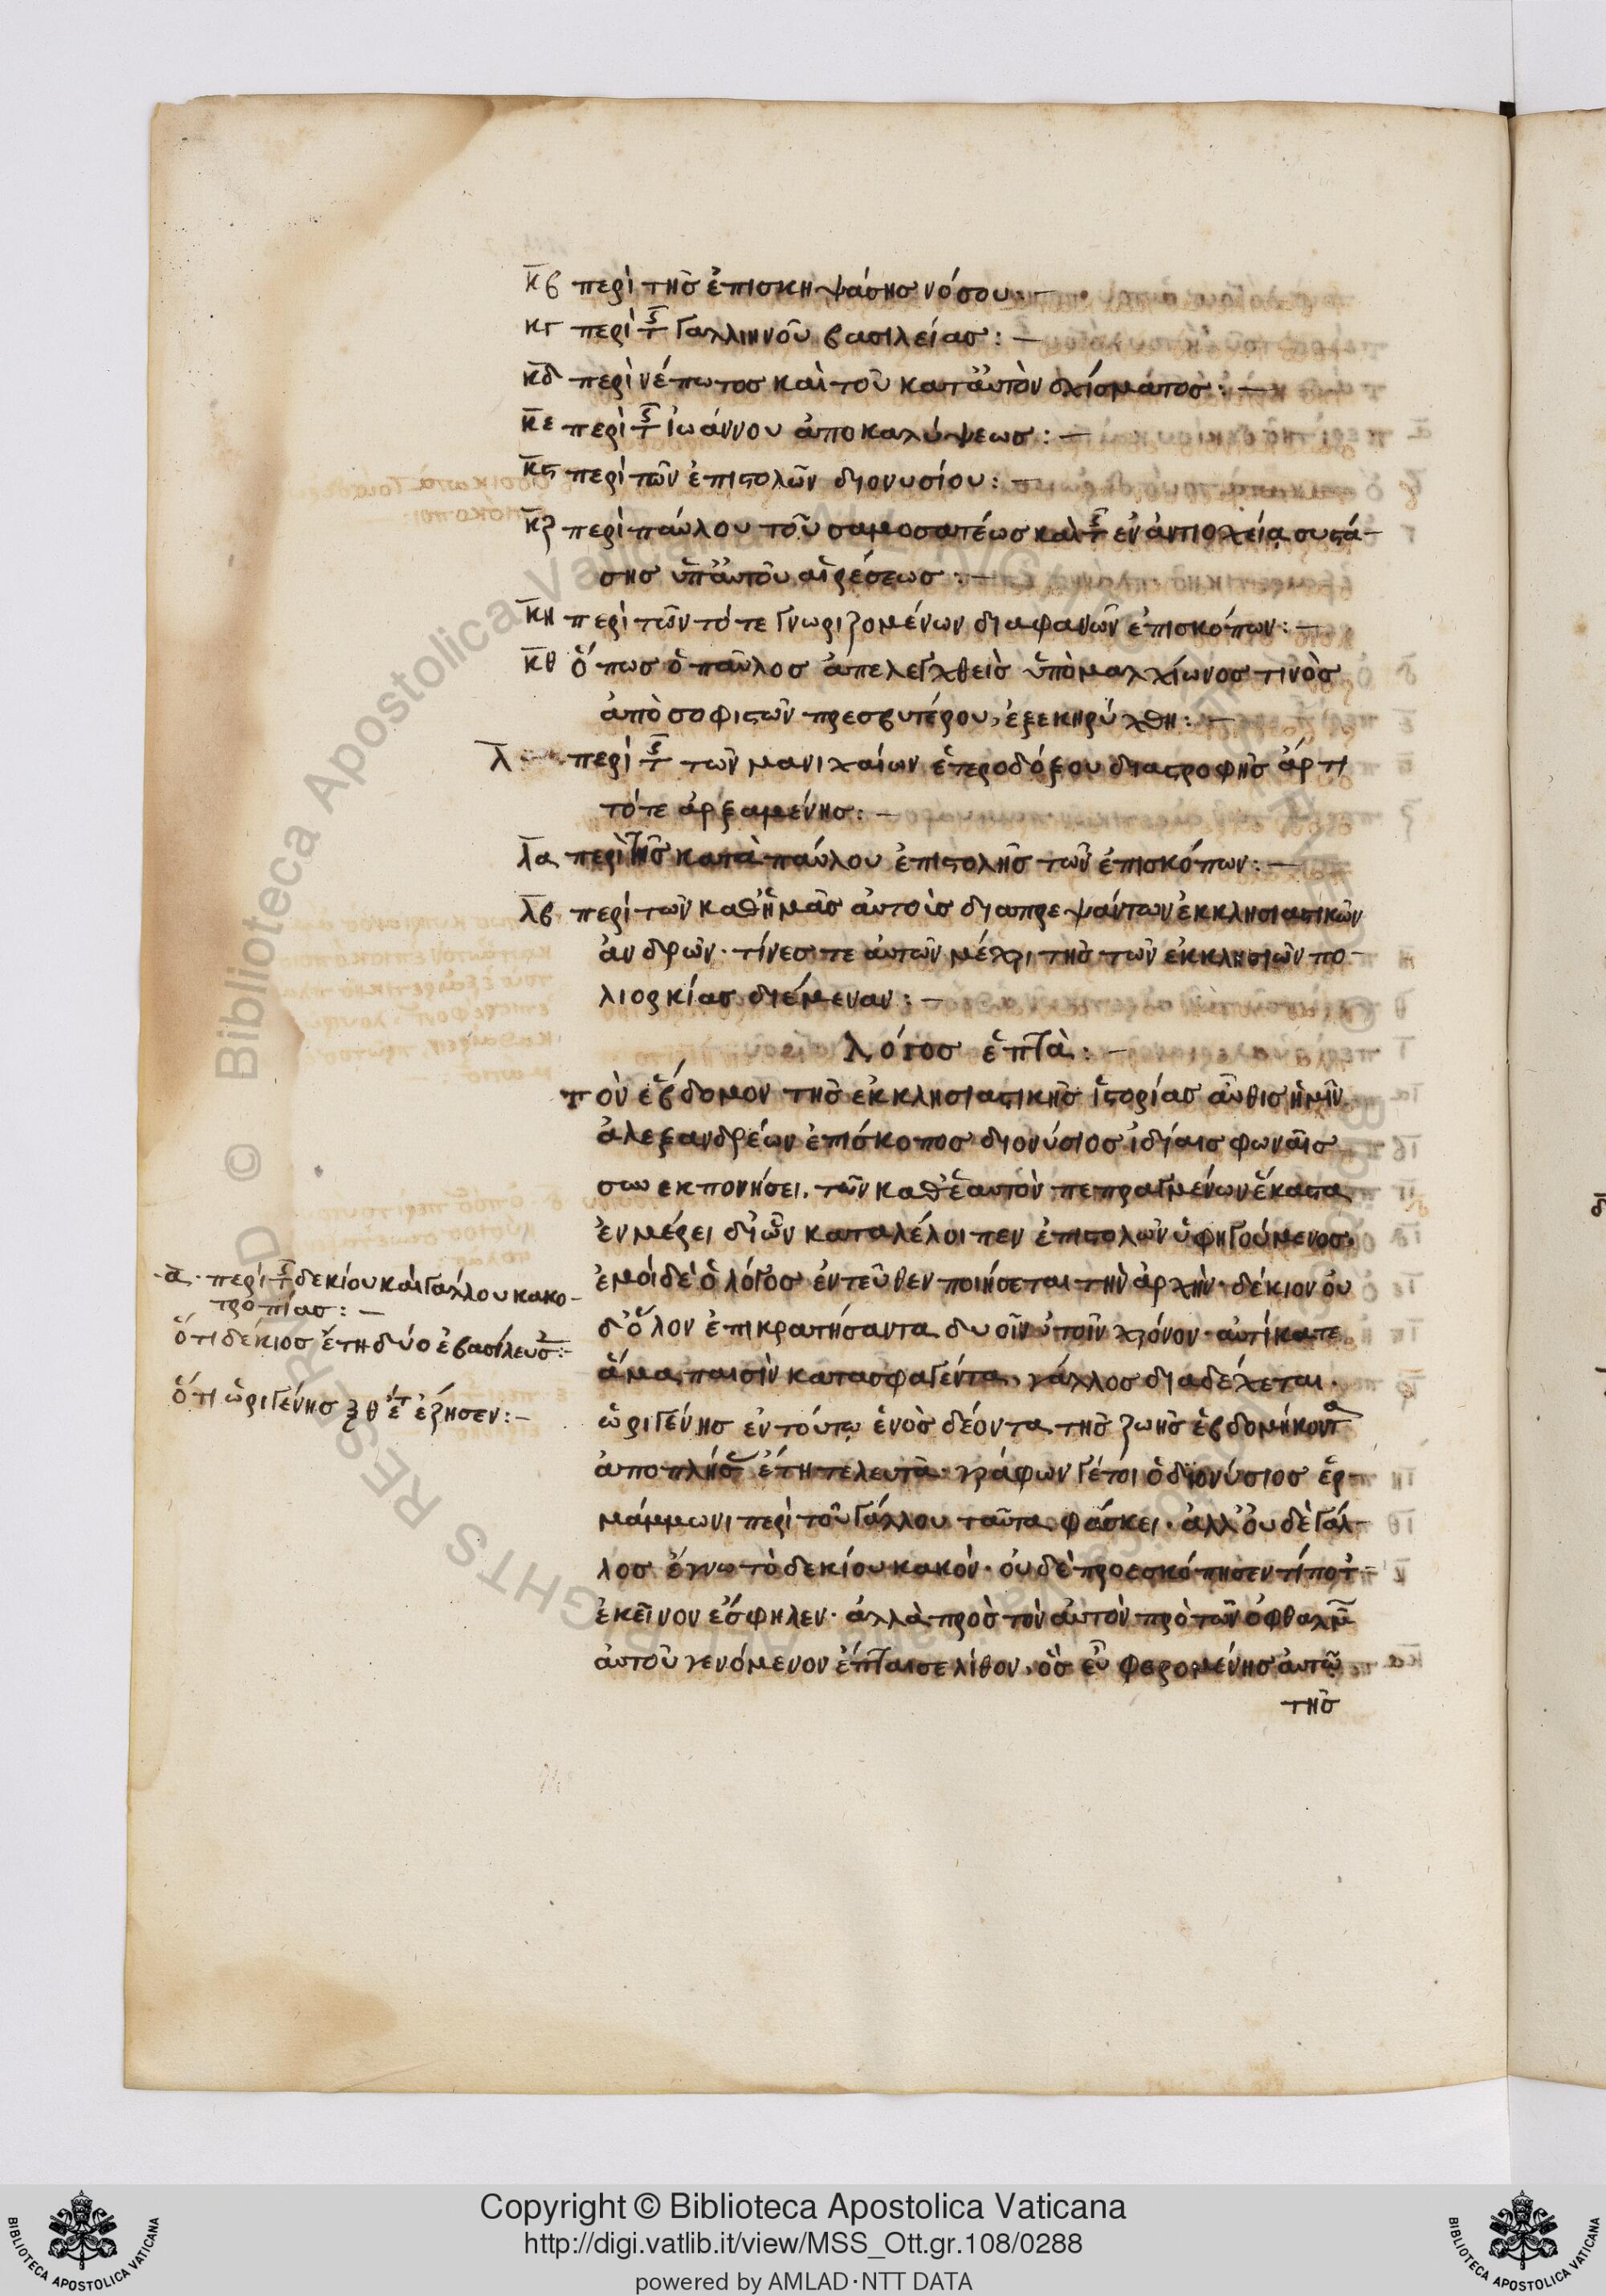 κβ περὶ τῆς ἐπισκηψάσης νόσου: —
κγ περὶ τ(ῆς) γαλλιηνοῦ βασιλείας: —
κδ περὶ νέπωτος καὶ τοῦ κατ' αὐτὸν σχίσματος: —
κε περὶ τ(ῆς) ἰωάννου ἀποκαλύψεως: —
κϛ περὶ τῶν ἐπιστολῶν διονυσίου: —
κζ περὶ παύλου τοῦ σαμοσατέως καὶ τ(ῆς) ἐν ἀντιοχεία συστά-
σης ὑπ' αὐτοῦ αἱρέσεως: —
κη περὶ τῶν τότε γνωριζομένων διαφανῶν ἐπισκόπων: —
κθ ὅπως ὁ παῦλος ἀπελεγχθεὶς ὑπὸ μαλχίωνος τινὸς
ἀπὸ σοφιστῶν πρεσβυτέρου, ἐξεκηρύχθη: —
λ περὶ τ(ῆς) τῶν μανιχαίων ἑτεροδόξου διαστροφῆς ἄρτι
τότε ἀρξαμένης: —
λα περὶ τῆς κατὰ παύλου ἐπιστολῆς τῶν ἐπισκόπων: —
λβ περὶ τῶν καθ' ἡμᾶς αὐτοὺς διαπρεψάντων ἐκκλησιαστικῶν
ἀνδρῶν· τίνες τε αὐτῶν μέχρι τῆς τῶν ἐκκλησιῶν πο-
λιορκίας διέμεναν: —
λόγος ἑπτὰ: —
τὸν ἕβδομον τῆς ἐκκλησιαστικῆς ἱστορίας αὖθις ἡμῖν
ἀλεξανδρέων ἐπίσκοπος διονύσιος ἰδίαις φωναῖς
συνεκπονήσει. τῶν καθ' ἑαυτὸν πεπραγμένων ἕκαστα
ἐν μέρει δι' ὧν καταλέλοιπεν ἐπιστολῶν ὑφηγούμενος.
ἐμοὶ δὲ ὁ λόγος ἐντεῦθεν ποιήσεται τὴν ἀρχήν· δέκιον οὐ
δ' ὅλον ἐπικρατήσαντα δυοῖν ἐτοῖν χρόνον· αὐτίκα τε
ἅμα παισὶν κατασφαγέντα, γάλλος διαδέχεται.
ὠριγένης ἐν τούτῳ ἑνὸς δέοντα τῆς ζωῆς ἑβδομήκοντα
ἀποπλήσας ἔτη τελευτᾶ· γράφων γέτοι ὁ διονύσιος ἑρ-
μάμμωνι περὶ τοῦ γάλλου ταῦτα φάσκει· ἀλλ' οὐδὲ γάλ-
λος ἔγνω τὸ δεκίου κακὸν· οὐδὲ προεσκόπησεν τί ποτ'
ἐκεῖνον ἔσφηλεν· ἀλλὰ πρὸς τὸν αὐτὸν πρὸ τῶν ὀφθαλμῶν
αὐτοῦ γενόμενον ἔπταισε λίθον, ὃς εὖ φερομένης αὐτῷ
τῆς
α· περὶ τ(ῆς) δεκίου καὶ γάλλου κακο-
τροπίας: —
ὅτι δέκιος ἔτη δύο ἐβασίλευσ(εν): —
ὅτι ὠριγένης ξθ ἔτ(η) ἔζησεν: —
Copyright © Biblioteca Apostolica Vaticana
http://digi.vatlib.it/view/MSS_Ott.gr.108/0288
powered by AMLAD·NTT DATA
BIBLIOTECA APOSTOLICA VATICANA
BIBLIOTECA APOSTOLICA VATICANA